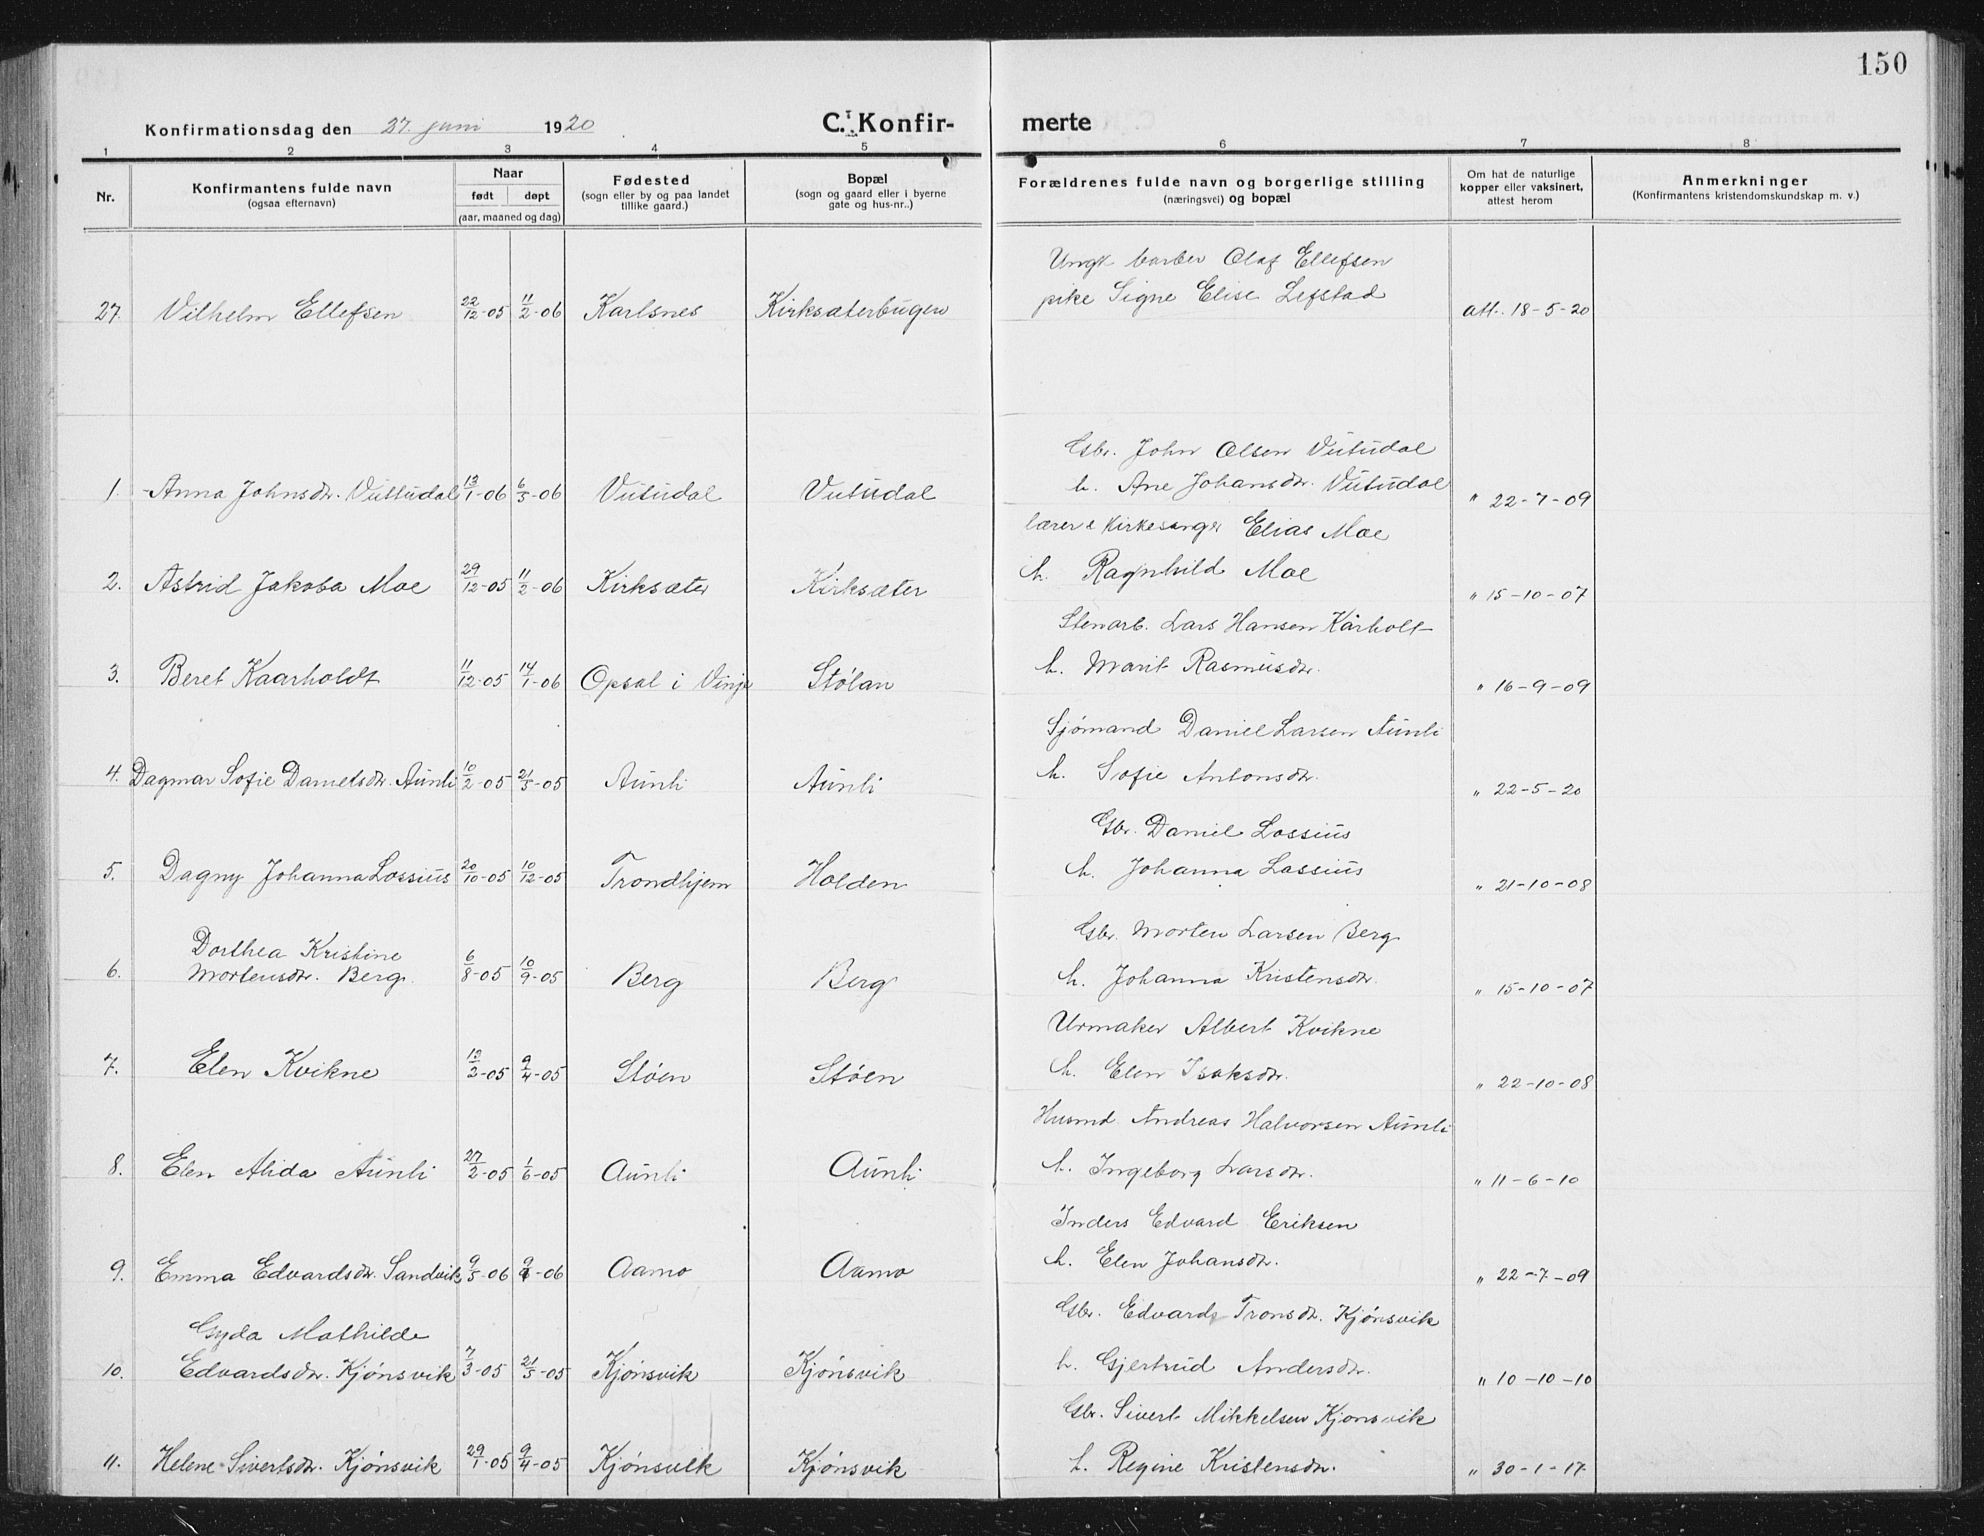 150
Konfirmationsdag den 27. juni 1920
C. Konfir-
merte
1 2 3 4 5 6 7 8
Nr.
Konfirmantens fulde navn
(ogsaa efternavn)
Naar
født døpt
(aar, maaned og dag)
Fødested
(sogn eller by og paa landet
tillike gaard.)
Bopæl
(sogn og gaard eller i byerne
gate og hus-nr..)
Forældrenes fulde navn og borgerlige stilling
(næringsvei) og bopæl
Om hat de naturlige
kopper eller vaksinert,
attest herom
Anmerkninger
(Konfirmantens kristendomskundskap m. v.)
Ungk barber Olaf Ellefsen
pike Signe Elise Lefstad
27. Vilhelm Ellefsen 22/12-05 11/2-06 Karlsnes Kirksæterbugen att. 18-5-20
Gbr. John Olsen Vutudal
h. Ane Johansdr. Vutudal
1. Anna Johnsdr. Vuttudal 13/1-06 6/5-06 Vutudal Vutudal " 22-7-09
lærer & Kirkesanger Elias Moe
h. Ragnhild Moe
2. Astrid Jakoba Moe 29/12-05 11/2-06 Kirksæter Kirksæter " 15-10-07
Stenarb. Lars Hansen Kårholt
h. Marit Rasmusdr.
3. Beret Kaarholdt 11/12-05 14/1-06 Opsal i Vinje Stølan " 16-9-09
Sjømand Daniel Larsen Aunli
h. Sofie Antonsdr.
4. Dagmar Sofie Danielsdr. Aunli 10/2-05 21/5-05 Aunli Aunli " 22-5-20
Gbr. Daniel Lossius
h. Johanna Lossius
5. Dagny Johanna Lossius 20/10-05 10/12-05 Trondhjem Holden " 21-10-08
Gbr. Morten Larsen Berg
Dorthea Kristine
h. Johanna Kristensdr.
6. Mortensdr. Berg. 6/8-05 10/9-05 Berg Berg " 15-10-07
Urmaker Albert Kvikne
h. Elen Isaksdr.
7. Elen Kvikne 13/2-05 9/4-05 Støen Støen " 22-10-08
Husmd. Andreas Halvorsen Aunli
h. Ingeborg Larsdr.
8. Elen Alida Aunli 27/2-05 1/6-05 Aunli Aunli " 11-6-10
Inders Edvard Eriksen
h. Elen Johansdr.
9. Emma Edvardsdr. Sandvik 9/5-06 -06 Aamo Aamo " 22-7-09
Gbr. Edvard Tronsdr. Kjønsvik
Gyda Mathilde
h. Gjertrud Andersdr.
10. Edvardsdr. Kjønsvik 7/3-05 21/5-05 Kjønsvik Kjønsvik " 10-10-10
Gbr. Sivert Mikkelsen Kjønsvik
h. Regine Kristensdr.
11. Helene Sivertsdr. Kjønsvik 29/1-05 9/4-05 Kjønsvik Kjønsvik " 30-1-17